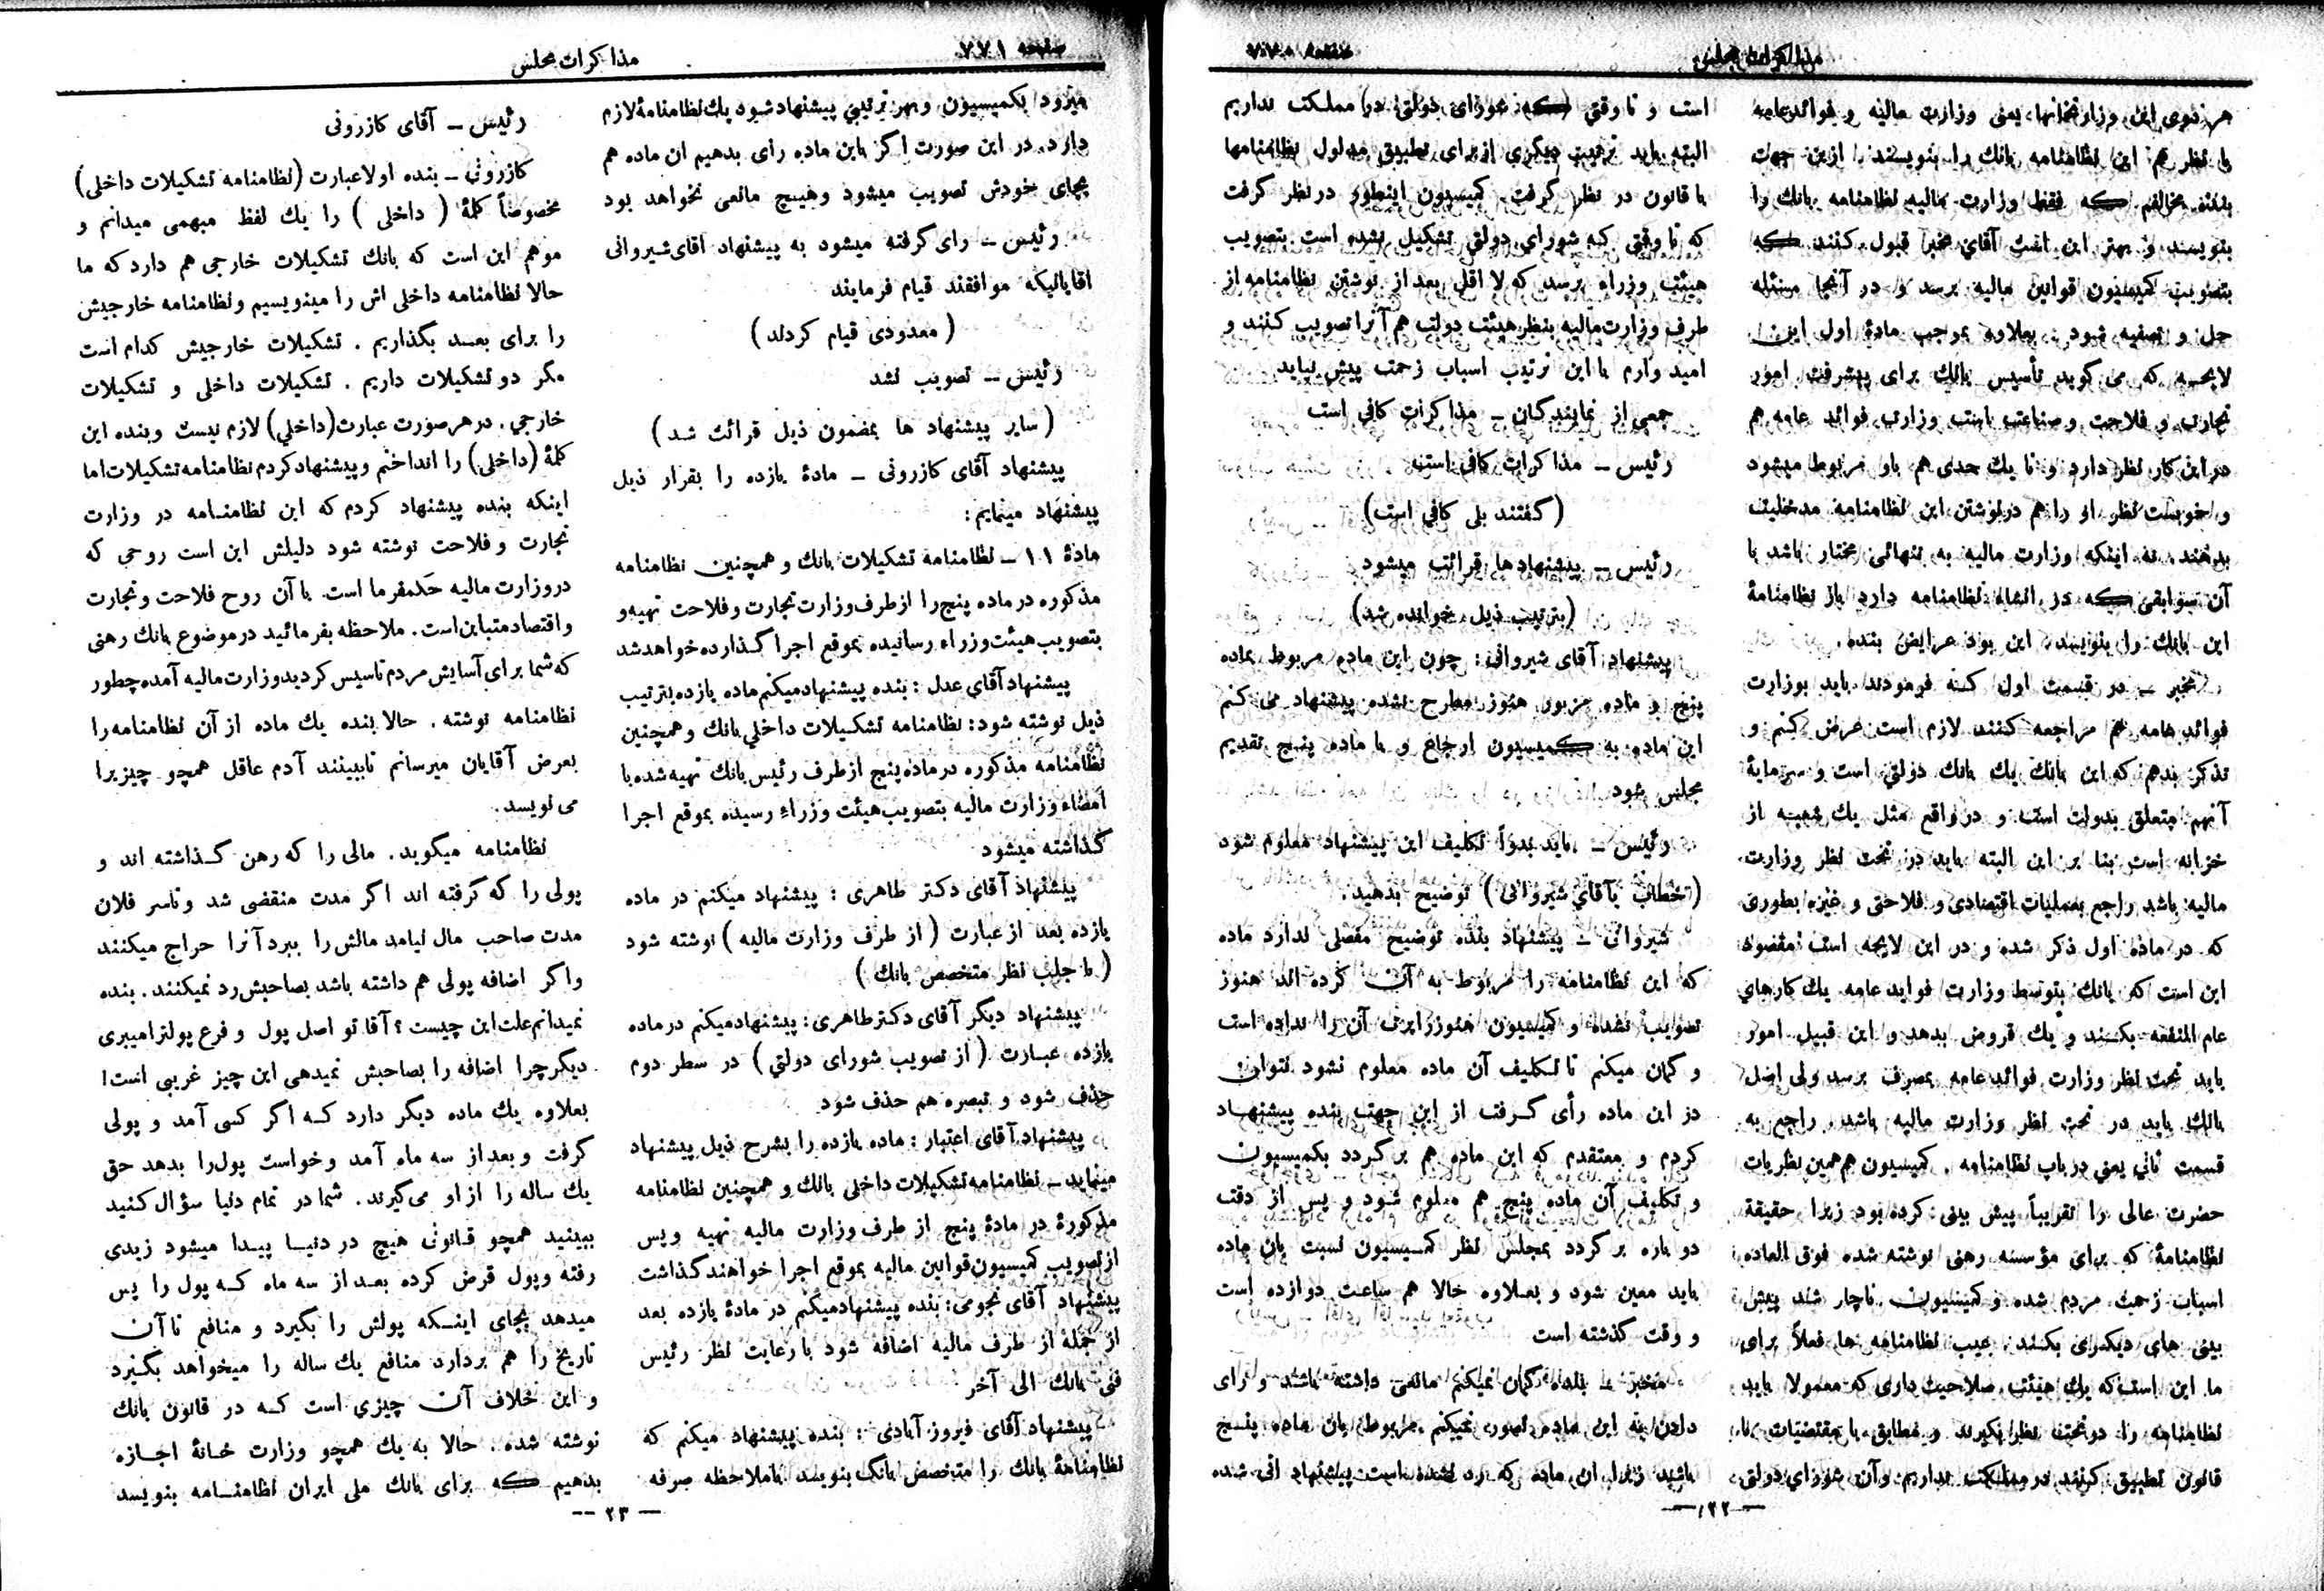 مذاکرات مجلس
صفحه ۷۷۰
هر دوی این وزارتخانها، یعنی وزارت مالیه و فوائد عامه
با نظر هم این نظامنامه بانك را بنویسند، ازین جهت
بنده مخالفم که فقط وزارت مالیه نظامنامه بانك را
بنویسد و بهتر این است آقای مخبر قبول کنند که
بتصویب کمیسیون قوانین مالیه برسد و در آنجا مسئله
حل و تصفیه شود. بعلاوه بموجب مادهٔ اول این
لایحه که می گوید تأسیس بانك برای پیشرفت امور
تجارت و فلاحت و صناعت است وزارت فوائد عامه هم
در این کار نظر دارد و تا یك حدی هم باو مربوط میشود
و خوبست نظر او را هم درنوشتن این نظامنامه مدخلیت
بدهند. نه اینکه وزارت مالیه به تنهائی مختار باشد با
آن سوابقی که در انشاء نظامنامه دارد باز نظامنامهٔ
این بانك را بنویسد، این بود عرایض بنده.
مخبر ـ در قسمت اول که فرمودند باید بوزارت
فوائد عامه هم مراجعه کنند لازم است عرض کنم و
تذکر بدهم که این بانك یك بانك دولتی است و سرمایهٔ
آنهم متعلق بدولت است و در واقع مثل یك شعبه از
خزانه است بنا بر این البته باید در تحت نظر وزارت
مالیه باشد راجع بعملیات اقتصادی و فلاحتی و غیره بطوری
که در مادهٔ اول ذکر شده و در این لایحه است مقصود
این است که بانك بتوسط وزارت فواید عامه یك کارهای
عام المنفعه بکند و یك قروض بدهد و این قبیل امور
باید تحت نظر وزارت فوائد عامه بمصرف برسد ولی اصل
بانك باید در تحت نظر وزارت مالیه باشد. راجع به
قسمت ثانی یعنی در باب نظامنامه. کمیسیون هم همین نظریات
حضرت عالی را تقریباً پیش بینی کرده بود زیرا حقیقة
نظامنامهٔ که برای مؤسسه رهنی نوشته شده فوق العاده
اسباب زحمت مردم شده و کمیسیون ناچار شد پیش
بینی های دیگری بکند: عیب نظامنامه ها فعلاً برای
ما این است که یك هیئت صلاحیت داری که معمولا باید
نظامنامه را در تحت نظر بگیرند و مطابق با مقتضیات با
قانون تطبیق کنند در مملکت نداریم وآن شورای دولتی
است و تا وقتی که شورای دولتی در مملکت نداریم
البته باید ترتیب دیگری از برای تطبیق مدلول نظامنامها
با قانون در نظر گرفت. کمیسیون اینطور در نظر گرفت
که تا وقتی که شورای دولتی تشکیل نشده است بتصویب
هیئت وزراء برسد که لا اقل بعد از نوشتن نظامنامه از
طرف وزارت مالیه بنظر هیئت دولت هم آنرا تصویب کنند و
امید وارم با این ترتیب اسباب زحمت پیش نیاید
جمعی از نمایندگان ـ مذاکرات کافی است
رئیس ـ مذاکرات کافی است
(گفتند بلی کافی است)
رئیس ـ پیشنهادها قرائت میشود
(بترتیب ذیل خوانده شد)
پیشنهاد آقای شیروانی: چون این ماده مربوط بماده
پنج و ماده مزبور هنوز مطرح نشده پیشنهاد می کنم
این ماده به کمیسیون ارجاع و با ماده پنج تقدیم
مجلس شود
رئیس ـ باید بدواً تکلیف این پیشنهاد معلوم شود
(خطاب بآقای شیروانی) توضیح بدهید.
شیروانی ـ پیشنهاد بنده توضیح مفصلی ندارد ماده
که این نظامنامه را مربوط به آن کرده اند هنوز
تصویب نشده و کمیسیون هنوز راپرت آن را نداده است
و گمان میکنم تا تکلیف آن ماده معلوم نشود نتوان
در این ماده رأی گرفت از این جهت بنده پیشنهاد
کردم و معتقدم که این ماده هم بر گردد بکمیسیون
و تکلیف آن ماده پنج هم معلوم شود و پس از دقت
دو باره بر گردد بمجلس نظر کمیسیون نسبت بان ماده
باید معین شود و بعلاوه حالا هم ساعت دوازده است
و وقت گذشته است
مخبر ـ بنده گمان نمیکنم مانعی داشته باشد و رای
دادن به این ماده تصور نمیکنم مربوط بان ماده پنج
باشد زیرا ان ماده که رد نشده است پیشنهاد اتی شده
ـ ۲۲ ـ
صفحه ۷۷۱
مذاکرات مجلس
میرود بکمیسیون و بهر ترتیبی پیشنهاد شود یك نظامنامهٔ لازم
دارد. در این صورت اگر باین ماده رای بدهیم ان ماده هم
بجای خودش تصویب میشود وهیچ مانعی نخواهد بود
رئیس ـ رای گرفته میشود به پیشنهاد اقای شیروانی
اقایانیکه موافقند قیام فرمایند
(معدودی قیام کردند)
رئیس ـ تصویب نشد
(سایر پیشنهاد ها بمضمون ذیل قرائت شد)
پیشنهاد آقای کازرونی ـ مادهٔ یازده را بقرار ذیل
پیشنهاد مینمایم:
مادهٔ ۱۱ ـ نظامنامه تشکیلات بانك و همچنین نظامنامه
مذکوره در ماده پنج را از طرف وزارت تجارت و فلاحت تهیه و
بتصویب هیئت وزراء رسانیده بموقع اجرا گذارده خواهد شد
پیشنهاد آقای عدل: بنده پیشنهاد میکنم ماده یازده بترتیب
ذیل نوشته شود: نظامنامه تشکیلات داخلی بانك و همچنین
نظامنامه مذکوره در ماده پنج از طرف رئیس بانك تهیه شده با
امضاء وزارت مالیه بتصویب هیئت وزراء رسیده بموقع اجرا
گذاشته میشود
پیشنهاد آقای دکتر طاهری: پیشنهاد میکنم در ماده
یازده بعد از عبارت (از طرف وزارت مالیه) نوشته شود
(با جلب نظر متخصص بانك)
پیشنهاد دیگر آقای دکتر طاهری: پیشنهاد میکنم در ماده
یازده عبارت (از تصویب شورای دولتی) در سطر دوم
حذف شود و تبصره هم حذف شود
پیشنهاد آقای اعتبار: ماده یازده را بشرح ذیل پیشنهاد
مینماید ـ نظامنامه تشکیلات داخلی بانك و همچنین نظامنامه
مذکورهٔ در مادهٔ پنج از طرف وزارت مالیه تهیه و پس
از تصویب کمیسیون قوانین مالیه بموقع اجرا خواهند گذاشت
پیشنهاد آقای نجومی: بنده پیشنهاد میکنم در مادهٔ یازده بعد
از جملهٔ از طرف مالیه اضافه شود با رعایت نظر رئیس
فنی بانك الی آخر
پیشنهاد آقای فیروز آبادی: بنده پیشنهاد میکنم که
نظامنامهٔ بانك را متخصص بانك بنویسد باملاحظه صرفه
رئیس ـ آقای کازرونی
کازرونی ـ بنده اولا عبارت (نظامنامه تشکیلات داخلی)
مخصوصاً کلمهٔ (داخلی) را یك لفظ مبهمی میدانم و
موهم این است که بانك تشکیلات خارجی هم دارد که ما
حالا نظامنامه داخلی اش را مینویسیم ونظامنامه خارجیش
را برای بعد بگذاریم. تشکیلات خارجیش کدام است
مگر دو تشکیلات داریم. تشکیلات داخلی و تشکیلات
خارجی. در هر صورت عبارت (داخلی) لازم نیست و بنده این
کلمهٔ (داخلی) را انداختم و پیشنهاد کردم نظامنامه تشکیلات اما
اینکه بنده پیشنهاد کردم که این نظامنامه در وزارت
تجارت و فلاحت نوشته شود دلیلش این است روحی که
در وزارت مالیه حکمفرما است. با آن روح فلاحت و تجارت
و اقتصاد متباین است. ملاحظه بفرمائید در موضوع بانك رهنی
که شما برای آسایش مردم تاسیس کردید وزارت مالیه آمده چطور
نظامنامه نوشته. حالا بنده یك ماده از آن نظامنامه را
بعرض آقایان میرسانم تا ببینند آدم عاقل همچو چیز برا
می نویسد.
نظامنامه میگوید. مالی را که رهن گذاشته اند و
پولی را که گرفته اند اگر مدت منقضی شد و تا سر فلان
مدت صاحب مال نیامد مالش را ببرد آنرا حراج میکنند
واگر اضافه پولی هم داشته باشد بصاحبش رد نمیکنند. بنده
نمیدانم علت این چیست؟ آقا تو اصل پول و فرع پولترا میبری
دیگر چرا اضافه را بصاحبش نمیدهی این چیز غریبی است!
بعلاوه یك ماده دیگر دارد که اگر کسی آمد و پولی
گرفت و بعد از سه ماه آمد وخواست پول را بدهد حق
یك ساله را از او می گیرند. شما در تمام دنیا سؤال کنید
ببینید همچو قانونی هیچ در دنیا پیدا میشود زیدی
رفته وپول قرض کرده بعد از سه ماه که پول را پس
میدهد بجای اینکه پولش را بگیرد و منافع تا آن
تاریخ را هم بردارد منافع یك ساله را میخواهد بگیرد
و این خلاف آن چیزی است که در قانون بانك
نوشته شده. حالا به یك همچو وزارت خانهٔ اجازه
بدهیم که برای بانك ملی ایران نظامنامه بنویسد
ـ ۲۳ ـ